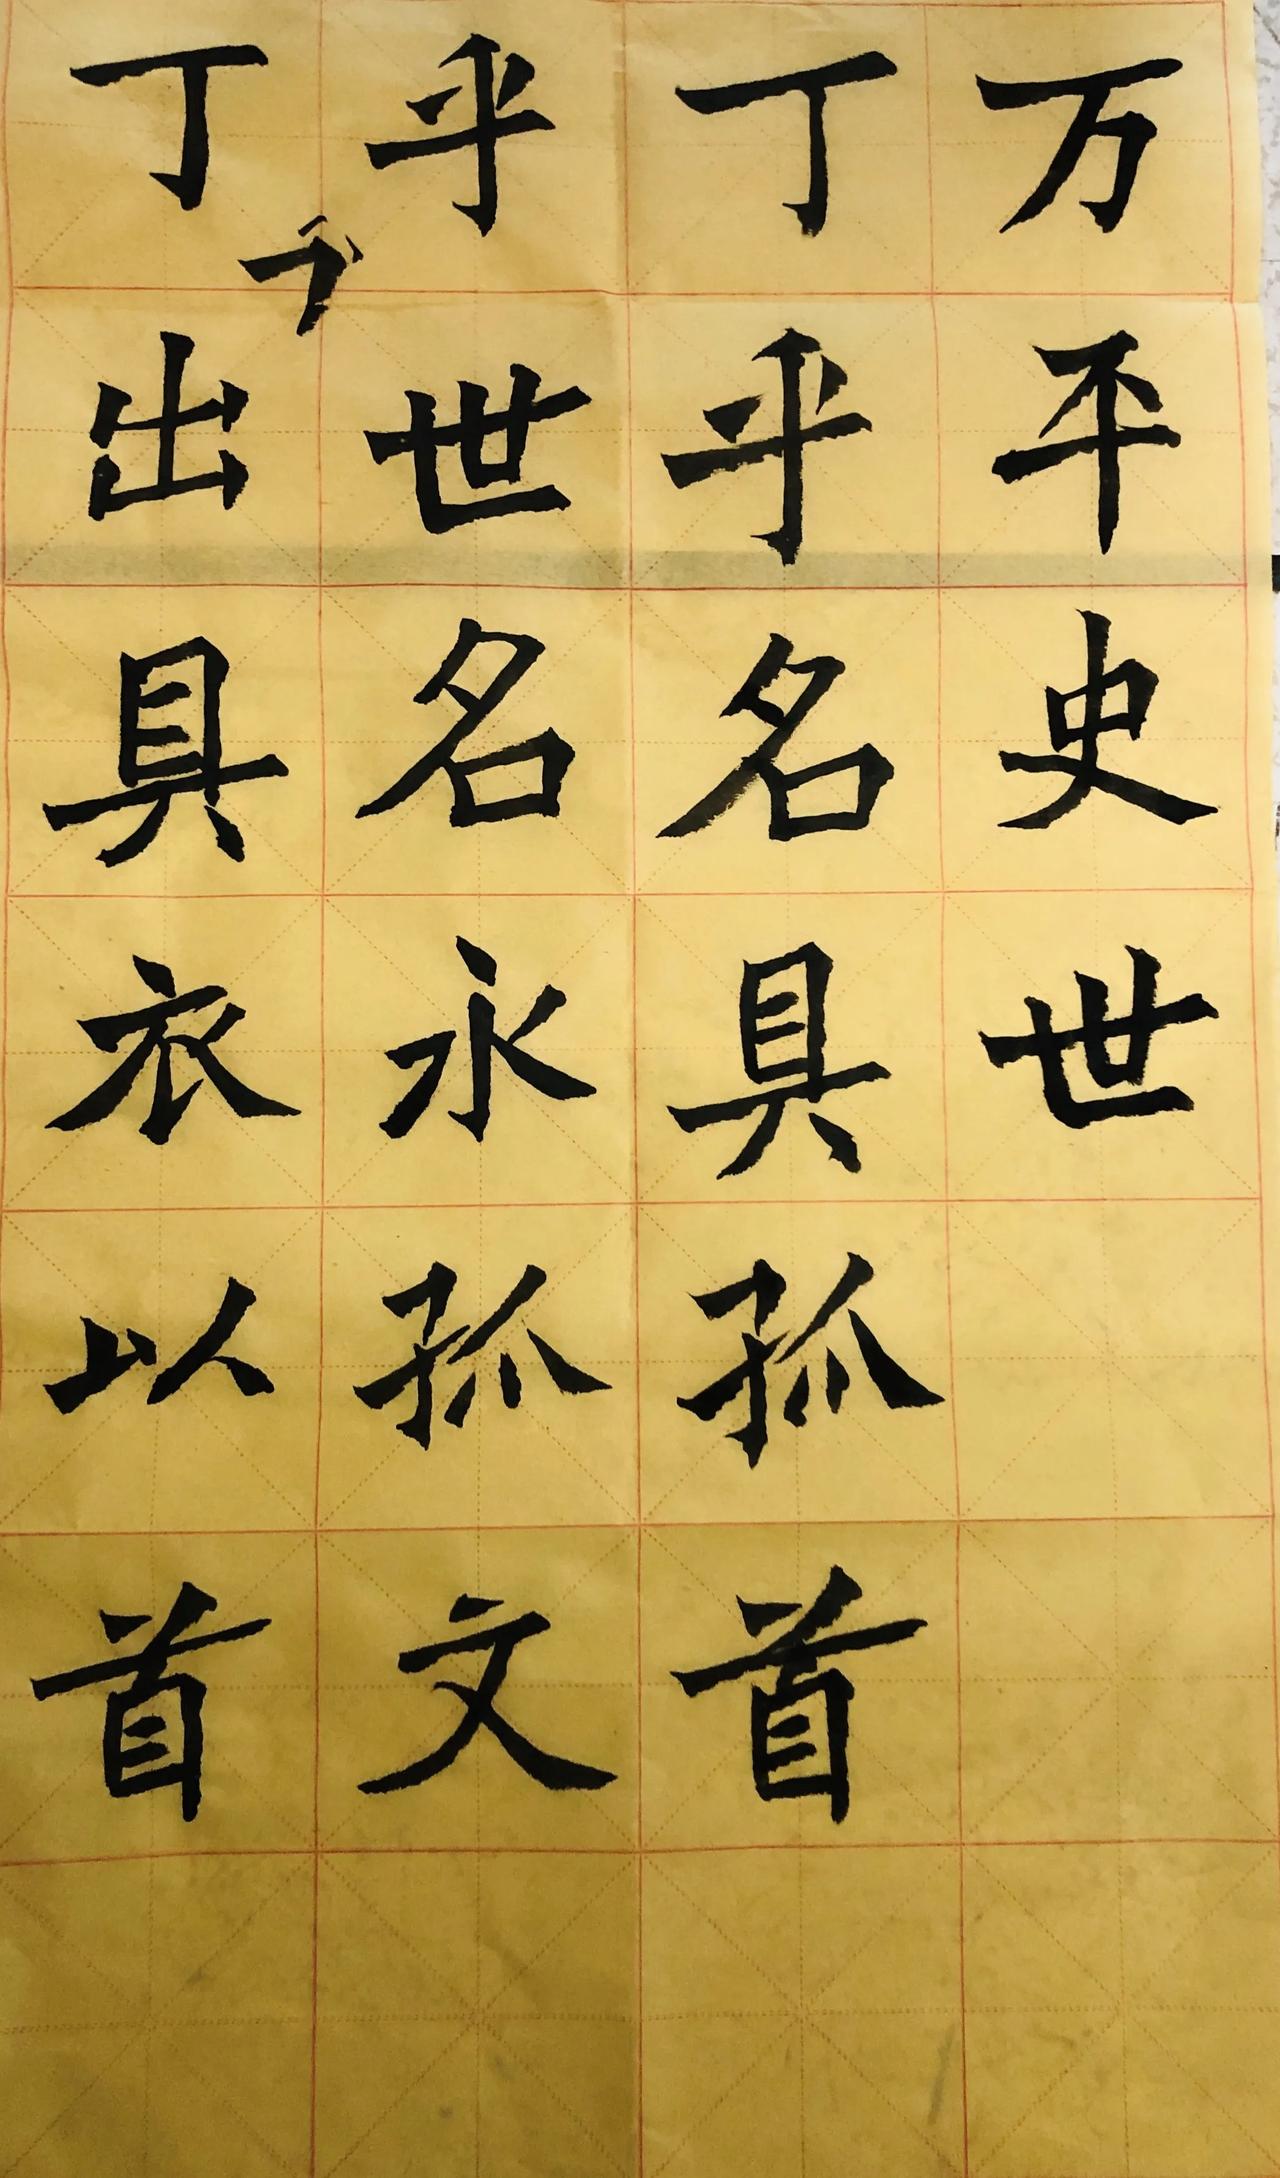 万平史世
丁乎名具孤首
乎世名永孤文
丁出具衣以首